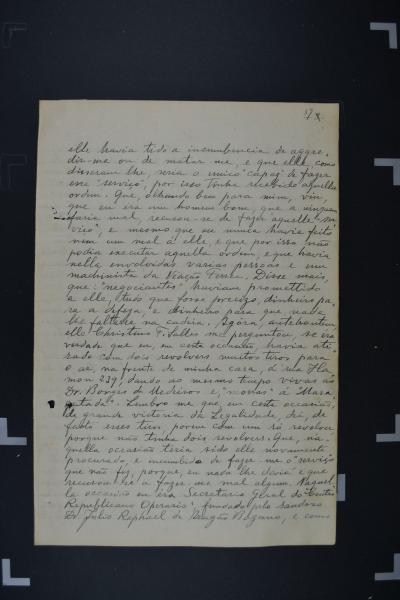 17 X
elle havia tido a incumbencia de aggre-
dir-me ou de matar me, e que elle, como
disseram lhe, seria o unico capaz de fazer
esse "serviço", por isso tinha recebido aquella
ordem. Que, olhando bem para mim, viu
que eu era um homem bom, que a ninguem
faria mal, recusou-se de fazer aquelle "ser-
viço", e mesmo que eu nunca havia feito
nem um mal a elle, e que por isso não
podia executar aquella ordem, e que havia
nella envolvidas varias pessoas e um
machinista da Viação Ferrea. Disse mais,
que: "negociantes" haviam promettido
a elle, tudo que fosse preciso, dinheiro pa-
ra a defeza, e dinheiro para que nada
lhe faltasse na cadeia. Agora, antehontem
elle Christino F. Salles me perguntou se era
verdade que eu, em certa occasião, havia ati-
rado com dois revolvers muitos tiros para
o ar, na frente de minha casa, á rua
239, dando ao mesmo tempo vivas ao
Dr. Borges de Medeiros e, "morras" á
Lembro me que, em certa occasião,
de grande victoria da Legalidade, dei, de
facto esses tiros porem com um só revolver
porque não tinha dois revolvers. Que, na-
quella occasião teria sido elle novamente
procurado e incumbido de fazer-me o "serviço"
que não fez, porque, eu nada lhe devia e que
recusou-se a fazer-me mal algum. Naquel-
la occasião eu era Secretario Geral do "Centro
Republicano Operario", fundado pelo saudoso
Dr. Julio Raphael de Aragão Bozano, e como